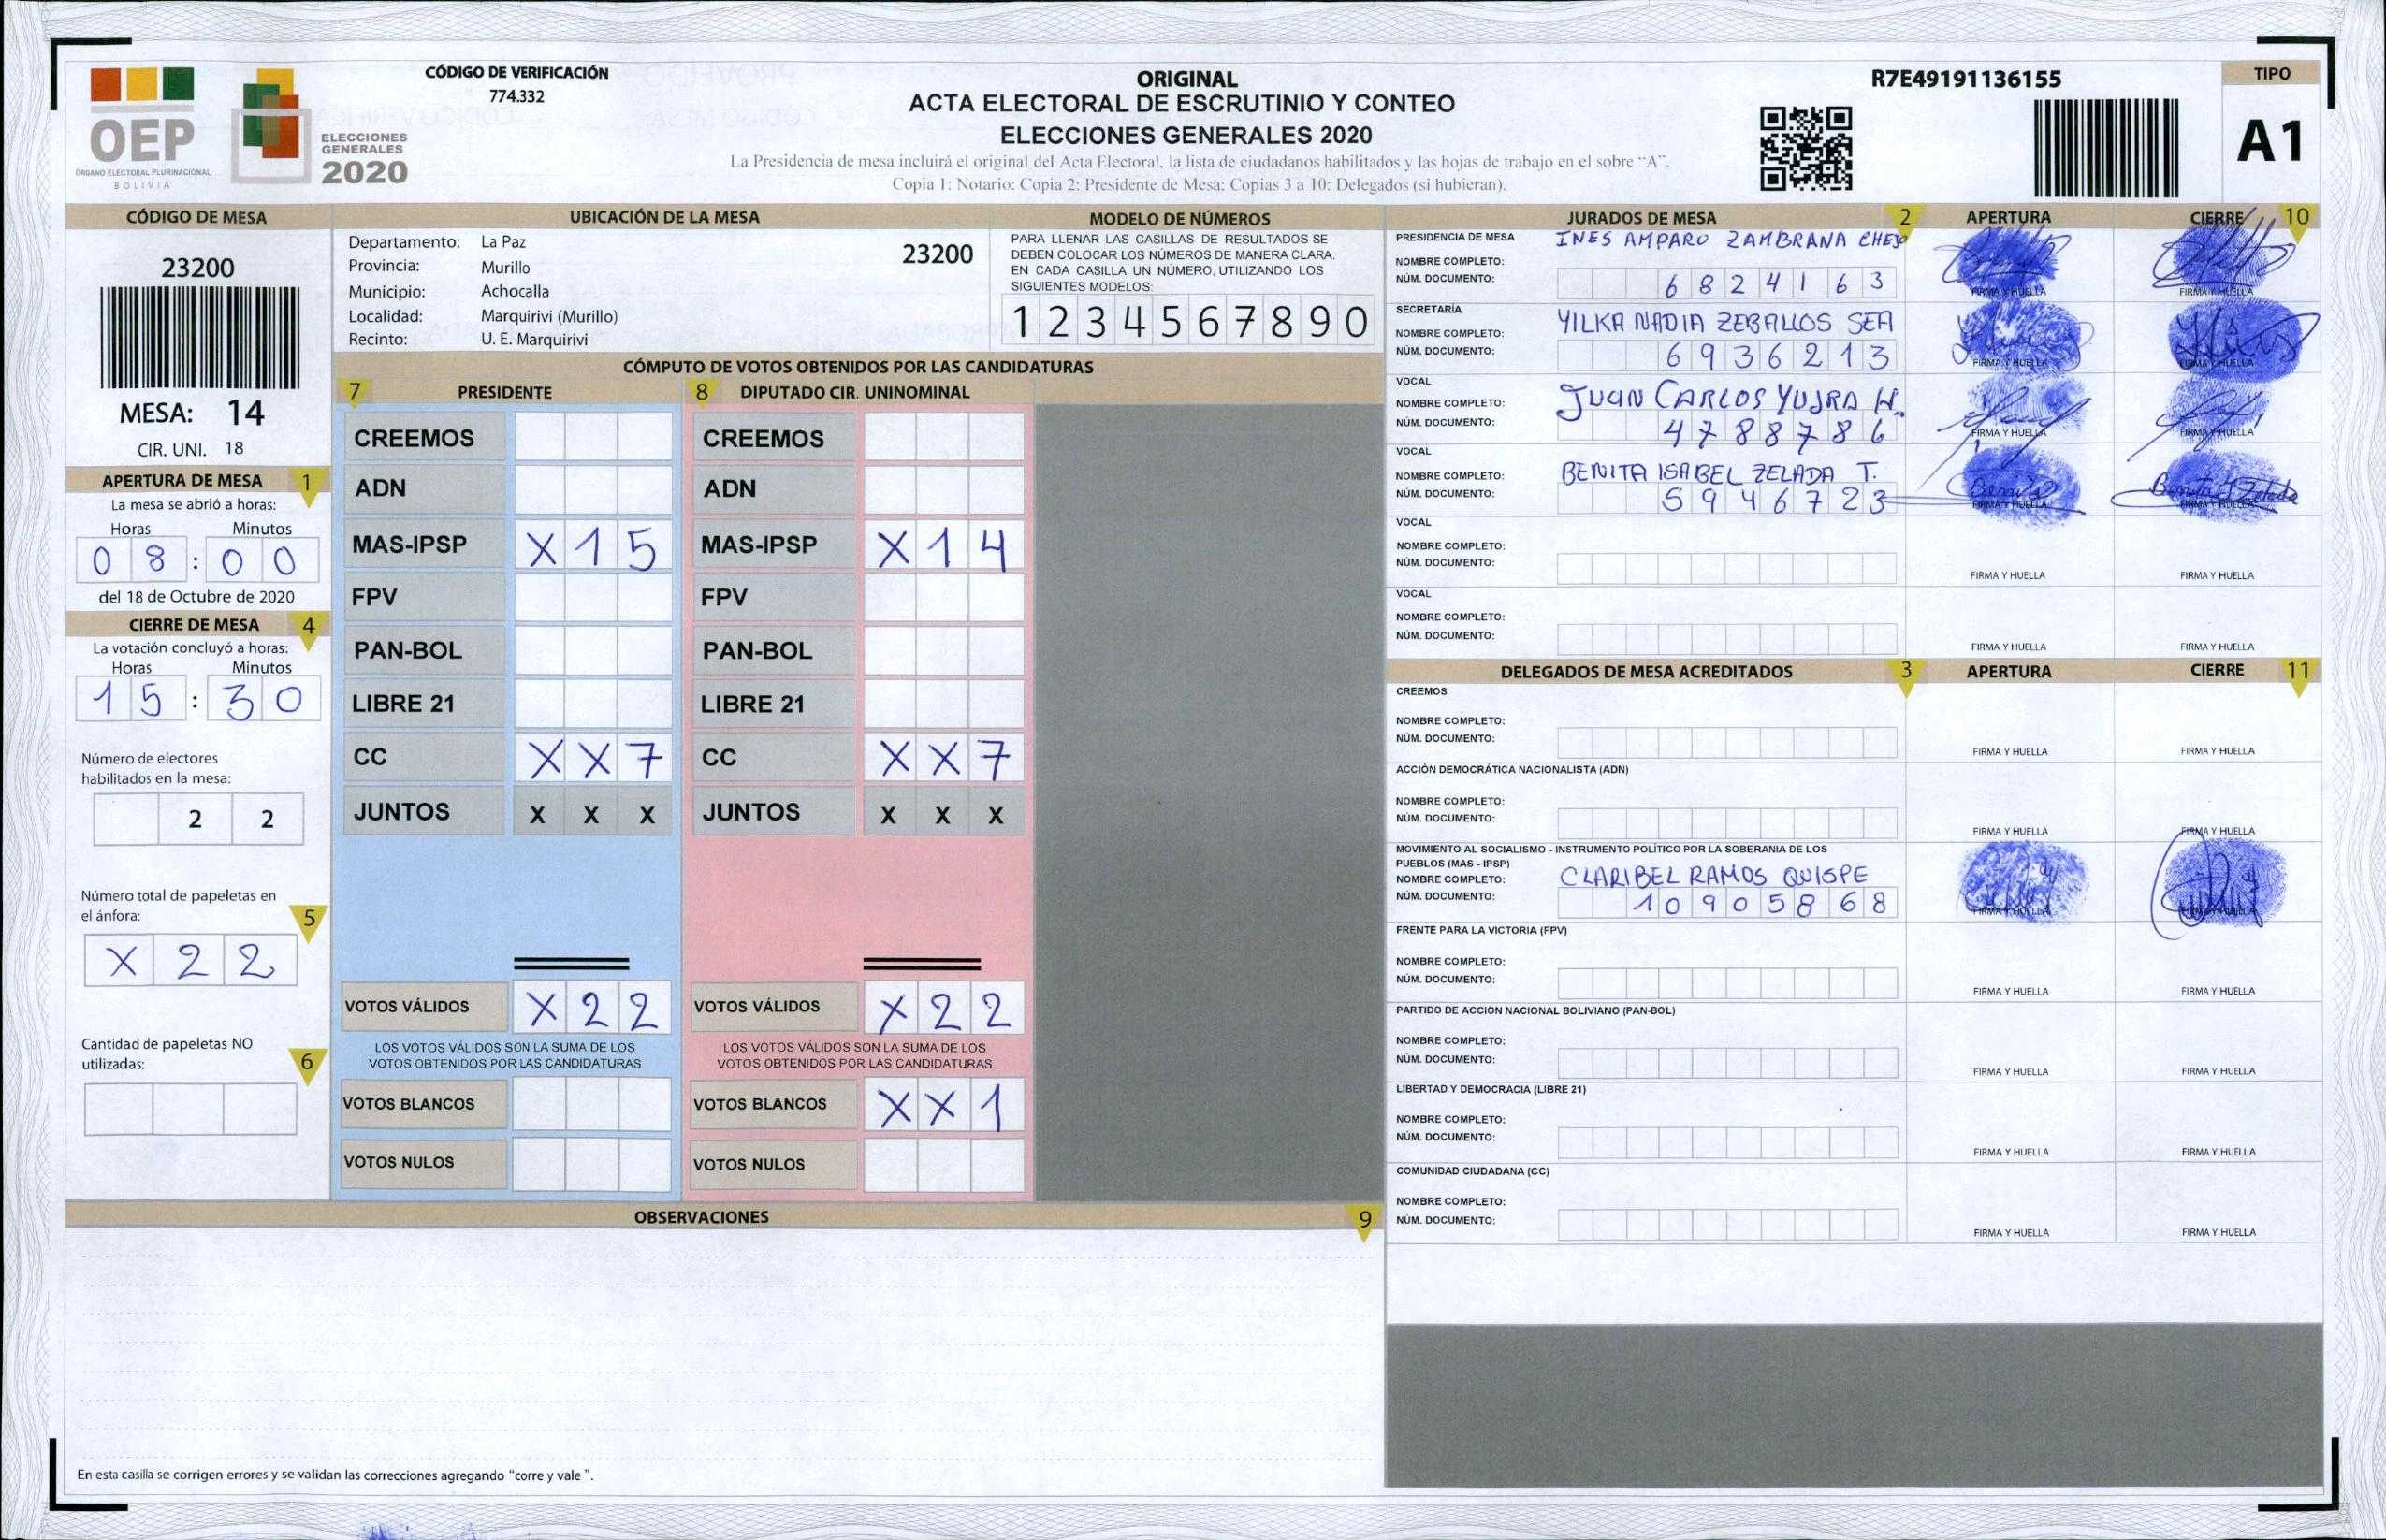 OEP
ÓRGANO ELECTORAL PLURINACIONAL
BOLIVIA
ELECCIONES
GENERALES
2020
CÓDIGO DE VERIFICACIÓN
774.332
ORIGINAL
ACTA ELECTORAL DE ESCRUTINIO Y CONTEO
ELECCIONES GENERALES 2020
La Presidencia de mesa incluirá el original del Acta Electoral, la lista de ciudadanos habilitados y las hojas de trabajo en el sobre "A".
Copia 1: Notario: Copia 2: Presidente de Mesa: Copias 3 a 10: Delegados (si hubieran).
R7E49191136155
TIPO
A1
CÓDIGO DE MESA
23200
MESA: 14
CIR. UNI. 18
APERTURA DE MESA 1
La mesa se abrió a horas:
Horas Minutos
0 8 : 0 0
del 18 de Octubre de 2020
CIERRE DE MESA 4
La votación concluyó a horas:
Horas Minutos
1 5 : 3 0
Número de electores
habilitados en la mesa:
2 2
Número total de papeletas en
el ánfora: 5
X 2 2
Cantidad de papeletas NO
utilizadas: 6
UBICACIÓN DE LA MESA
Departamento: La Paz
23200
Provincia: Murillo
Municipio: Achocalla
Localidad: Marquirivi (Murillo)
Recinto: U. E. Marquirivi
MODELO DE NÚMEROS
PARA LLENAR LAS CASILLAS DE RESULTADOS SE
DEBEN COLOCAR LOS NÚMEROS DE MANERA CLARA.
EN CADA CASILLA UN NÚMERO, UTILIZANDO LOS
SIGUIENTES MODELOS:
1 2 3 4 5 6 7 8 9 0
CÓMPUTO DE VOTOS OBTENIDOS POR LAS CANDIDATURAS
7 PRESIDENTE
CREEMOS
ADN
MAS-IPSP X 1 5
FPV
PAN-BOL
LIBRE 21
CC X X 7
JUNTOS X X X
VOTOS VÁLIDOS X 2 2
LOS VOTOS VÁLIDOS SON LA SUMA DE LOS
VOTOS OBTENIDOS POR LAS CANDIDATURAS
VOTOS BLANCOS
VOTOS NULOS
8 DIPUTADO CIR. UNINOMINAL
CREEMOS
ADN
MAS-IPSP X 1 4
FPV
PAN-BOL
LIBRE 21
CC X X 7
JUNTOS X X X
VOTOS VÁLIDOS X 2 2
LOS VOTOS VÁLIDOS SON LA SUMA DE LOS
VOTOS OBTENIDOS POR LAS CANDIDATURAS
VOTOS BLANCOS X X 1
VOTOS NULOS
OBSERVACIONES 9
En esta casilla se corrigen errores y se validan las correcciones agregando "corre y vale ".
JURADOS DE MESA 2 APERTURA CIERRE 10
PRESIDENCIA DE MESA INES AMPARO ZAMBRANA CHEJO
NOMBRE COMPLETO:
NÚM. DOCUMENTO: 6 8 2 4 1 6 3
FIRMA Y HUELLA FIRMA Y HUELLA
SECRETARÍA
NOMBRE COMPLETO: YILKA NADIA ZEBALLOS SEA
NÚM. DOCUMENTO: 6 9 3 6 2 1 3
FIRMA Y HUELLA FIRMA Y HUELLA
VOCAL
NOMBRE COMPLETO: JUAN CARLOS YUJRA H.
NÚM. DOCUMENTO: 4 7 8 8 7 8 6
FIRMA Y HUELLA FIRMA Y HUELLA
VOCAL
NOMBRE COMPLETO: BENITA ISABEL ZELADA T.
NÚM. DOCUMENTO: 5 9 4 6 7 2 3
FIRMA Y HUELLA FIRMA Y HUELLA
VOCAL
NOMBRE COMPLETO:
NÚM. DOCUMENTO:
FIRMA Y HUELLA FIRMA Y HUELLA
VOCAL
NOMBRE COMPLETO:
NÚM. DOCUMENTO:
FIRMA Y HUELLA FIRMA Y HUELLA
DELEGADOS DE MESA ACREDITADOS 3 APERTURA CIERRE 11
CREEMOS
NOMBRE COMPLETO:
NÚM. DOCUMENTO:
FIRMA Y HUELLA FIRMA Y HUELLA
ACCIÓN DEMOCRÁTICA NACIONALISTA (ADN)
NOMBRE COMPLETO:
NÚM. DOCUMENTO:
FIRMA Y HUELLA FIRMA Y HUELLA
MOVIMIENTO AL SOCIALISMO - INSTRUMENTO POLÍTICO POR LA SOBERANIA DE LOS
PUEBLOS (MAS - IPSP)
NOMBRE COMPLETO: CLARIBEL RAMOS QUISPE
NÚM. DOCUMENTO: 1 0 9 0 5 8 6 8
FIRMA Y HUELLA FIRMA Y HUELLA
FRENTE PARA LA VICTORIA (FPV)
NOMBRE COMPLETO:
NÚM. DOCUMENTO:
FIRMA Y HUELLA FIRMA Y HUELLA
PARTIDO DE ACCIÓN NACIONAL BOLIVIANO (PAN-BOL)
NOMBRE COMPLETO:
NÚM. DOCUMENTO:
FIRMA Y HUELLA FIRMA Y HUELLA
LIBERTAD Y DEMOCRACIA (LIBRE 21)
NOMBRE COMPLETO:
NÚM. DOCUMENTO:
FIRMA Y HUELLA FIRMA Y HUELLA
COMUNIDAD CIUDADANA (CC)
NOMBRE COMPLETO:
NÚM. DOCUMENTO:
FIRMA Y HUELLA FIRMA Y HUELLA